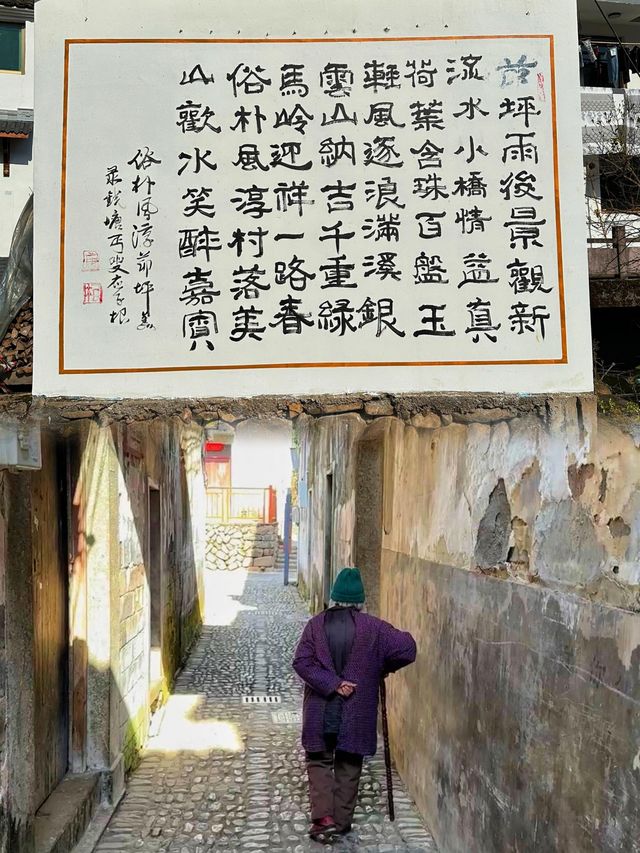 茆坪雨後景觀新
流水小橋情益真
荷葉含珠百盤玉
輕風逐浪滿溪銀
雲山納吉千重綠
馬岭迎祥一路春
俗朴風淳村落美
山歡水笑醉嘉賓
俗朴风淳茆坪美